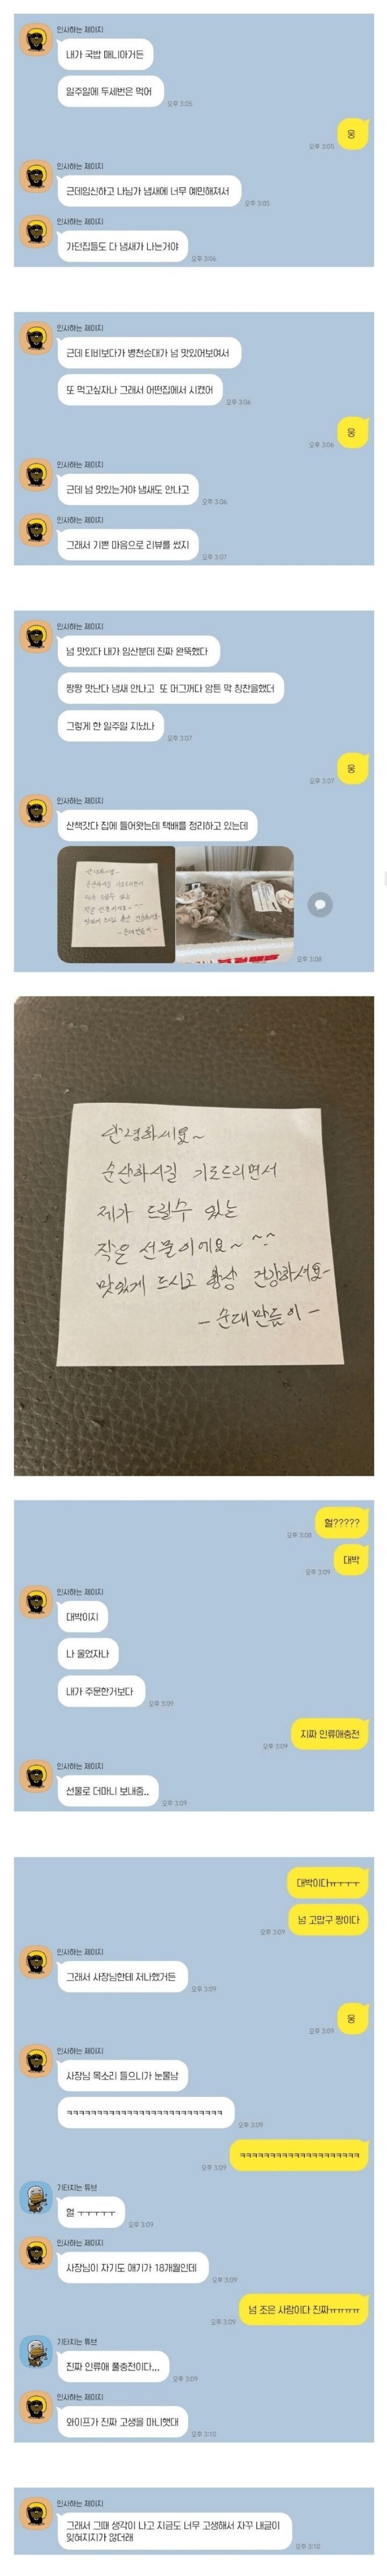 인사하는 제이지
내가 국밥 매니아거든
일주일에 두세번은 먹어
오후 3:05
웅
오후 3:05
인사하는 제이지
근데임신하고 나님가 냄새에 너무 예민해져서
오후 3:05
인사하는 제이지
가던집들도 다 냄새가 나는거야
오후 3:06
인사하는 제이지
근데 티비보다가 병천순대가 넘 맛있어보여서
또 먹고싶자나 그래서 어떤집에서 시켰어
오후 3:06
웅
오후 3:06
인사하는 제이지
근데 넘 맛있는거야 냄새도 안나고
오후 3:06
인사하는 제이지
그래서 기쁜 마음으로 리뷰를 썼지
오후 3:07
인사하는 제이지
넘 맛있다 내가 임산분데 진짜 완뚝했다
짱짱 맛난다 냄새 안나고 또 머그꺼다 암튼 막 칭찬을했더
그렇게 한 일주일 지났나
오후 3:07
웅
오후 3:07
인사하는 제이지
산책갓다 집에 들어왓는데 택배를 정리하고 있는데
오후 3:08
안녕하세요~
순산하시길 기도드리면서
제가 드릴수 있는
작은 선물이에요~ ^^
맛있게 드시고 항상 건강하셔요~
- 순대만듦이 -
헐?????
오후 3:08
대박
오후 3:09
인사하는 제이지
대박이지
나 울었자나
내가 주문한거보다
오후 3:09
지짜 인류애충전
오후 3:09
인사하는 제이지
선물로 더마니 보내중..
오후 3:09
대박이다ㅠㅜㅜㅜ
넘 고맙구 짱이다
오후 3:09
인사하는 제이지
그래서 사장님한테 저나했거든
오후 3:09
웅
오후 3:09
인사하는 제이지
사장님 목소리 들으니가 눈물남
ㅋㅋㅋㅋㅋㅋㅋㅋㅋㅋㅋㅋㅋㅋㅋㅋㅋㅋㅋㅋㅋㅋㅋㅋㅋㅋ
오후 3:09
ㅋㅋㅋㅋㅋㅋㅋㅋㅋㅋㅋㅋㅋㅋㅋㅋㅋㅋㅋㅋ
오후 3:09
기타치는 튜브
헐 ㅜㅜㅜㅜㅜ
오후 3:09
인사하는 제이지
사장님이 자기도 애기가 18개월인데
오후 3:09
넘 조은 사람이다 진짜ㅠㅠㅠㅠ
오후 3:09
기타치는 튜브
진짜 인류애 풀충전이다...
오후 3:09
인사하는 제이지
와이프가 진짜 고생을 마니햇대
오후 3:10
인사하는 제이지
그래서 그때 생각이 나고 지금도 너무 고생해서 자꾸 내글이
잊혀지지가 않더래
오후 3:10